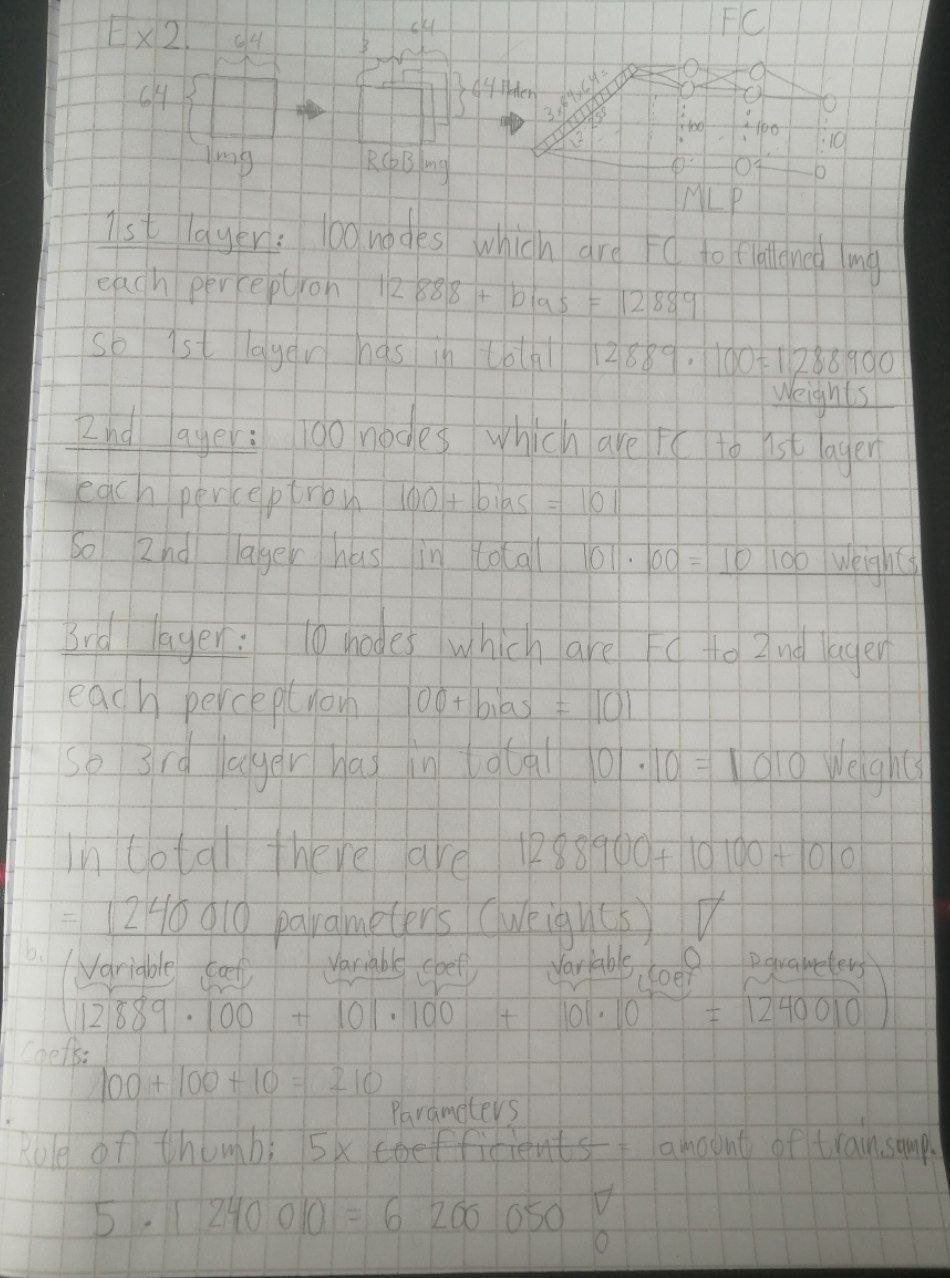 Ex2.
64
64
Img
3
64
64
RGB Img
FC
3·64·64=
12 288
100
100
10
MLP
1st layer: 100 nodes which are FC to flattened Img
each perceptron 12 888 + bias = 12889
so 1st layer has in total 12889 · 100 = 1288900
Weights
2nd layer: 100 nodes which are FC to 1st layer
each perceptron 100 + bias = 101
So 2nd layer has in total 101 · 100 = 10 100 weights
3rd layer: 10 nodes which are FC to 2nd layer
each perceptron 100 + bias = 101
so 3rd layer has in total 101 · 10 = 1 010 weights
In total there are 1288900 + 10 100 + 1010
= 1240 010 parameters (Weights) !
b.
(Variable coef. Variable coef. Variable coef Parameters
12 889 · 100 + 101 · 100 + 101 · 10 = 1240010)
Coefs:
100 + 100 + 10 = 210
Parameters
Rule of thumb: 5x coefficients = amount of train.samp.
5 · 1 240 010 = 6 200 050 !